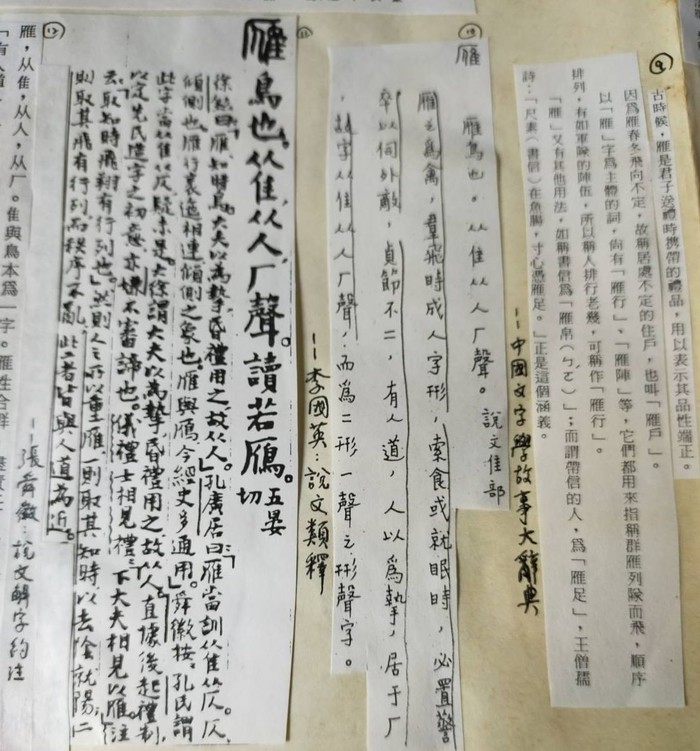 ⑨
古時候，雁是君子送禮時攜帶的禮品，用以表示其品性端正。
因爲雁春冬飛向不定，故稱居處不定的住戶，也叫「雁戶」。
以「雁」字爲主體的詞，尚有「雁行」、「雁陣」等，它們都用來指稱群雁列隊而飛，順序
排列，有如軍隊的陣伍，所以稱人排行老幾，可稱作「雁行」。
「雁」又有其他用法，如稱書信爲「雁帛（ㄅㄛˊ）」；而謂帶信的人，爲「雁足」，王僧孺
詩：「尺素（書信）在魚腸，寸心憑雁足。」正是這個涵義。
--中國文字學故事大辭典
⑩
雁
雁鳥也。从隹从人厂聲。說文隹部
雁之爲禽，羣飛時成人字形，索食或就眠時，必置警
卒以伺外敵，貞節不二，有人道，人以爲摯，居于厂
，故字从隹从人厂聲，而爲二形一聲之形聲字。
--李國英：說文類釋
⑪
雁鳥也。从隹从人，厂聲。讀若鴈。五晏切
徐鉉曰：「雁，知時鳥。大夫以為摯，昏禮用之，故从人。」孔廣居曰：「雁當訓从隹从仄。仄，
傾側也。雁行衺迤相連，傾側之象也。雁與鴈今經史多通用。」舜徽按：孔氏謂
此字當从隹从仄，疑未是。大徐謂大夫以為摯，昏禮用之，故从人，直據後起禮制
以定先民造字之初意，亦嫌不審諦也。儀禮士相見禮：「下大夫相見以雁。」注
云：「取知時，飛翔有行列也。」然則人之所以重雁，一則取其知時，以去陰就陽；二
則取其飛有行列，而秩序不亂，此二者皆與人道為近。
--張舜徽：說文解字約注
⑫
雁，从隹，从人，从厂。隹與鳥本爲一字。雁性合群